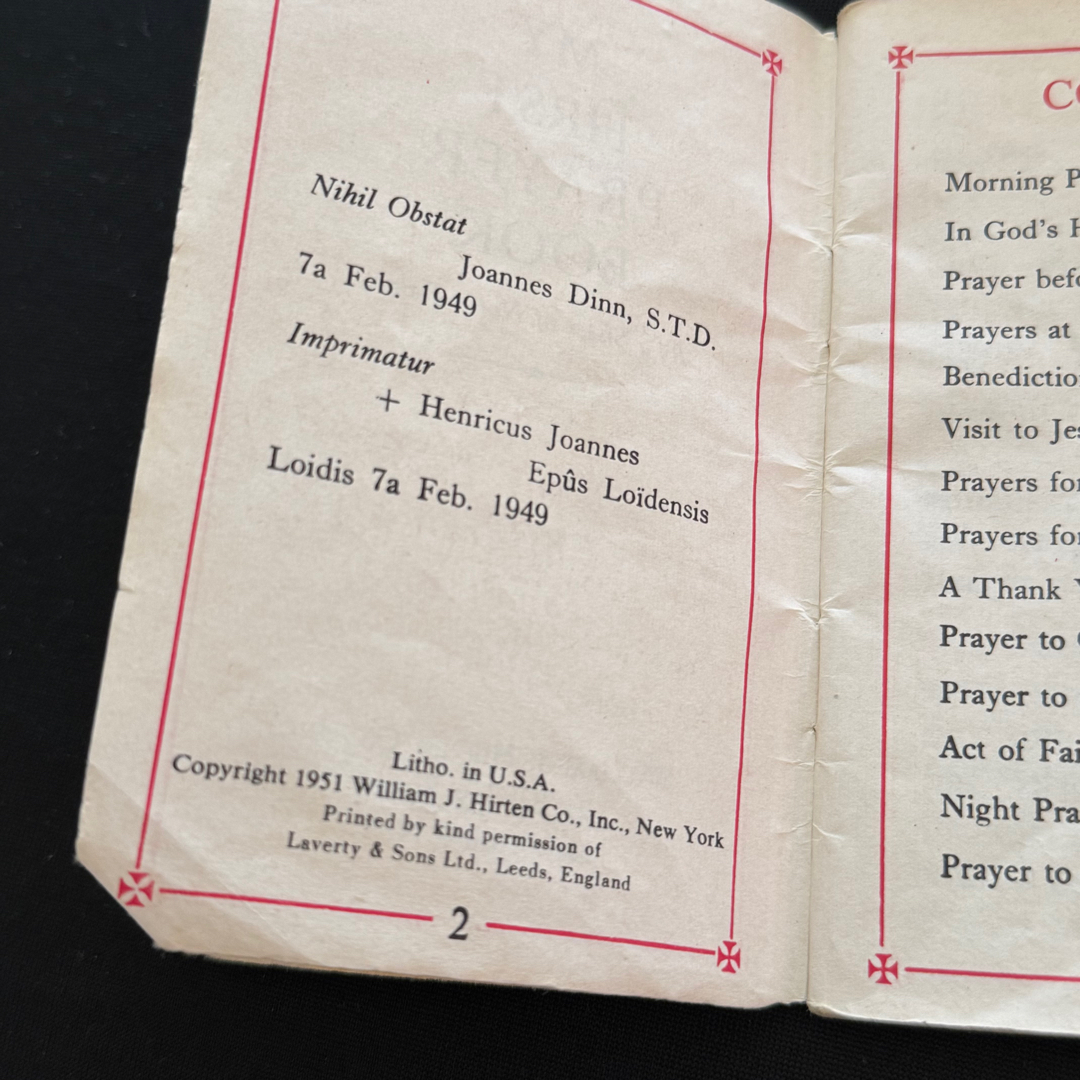 Nihil Obstat
Joannes Dinn, S.T.D.
7a Feb. 1949
Imprimatur
+ Henricus Joannes
Epûs Loïdensis
Loidis 7a Feb. 1949
Litho. in U.S.A.
Copyright 1951 William J. Hirten Co., Inc., New York
Printed by kind permission of
Laverty & Sons Ltd., Leeds, England
2
Morning
In God's
Prayer
Prayers at
Visit to
Prayers
Prayers
A Thank
Prayer to
Prayer to
Act of
Night
Prayer to